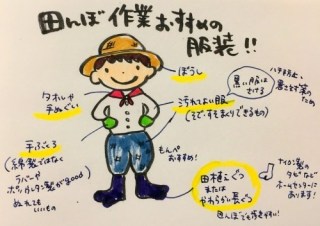 田んぼ作業おすすめの
服装!!
ぼうし
タオルや
手ぬぐい
黒い服は
さける
ハチ予防と
暑さ対策の
ため
汚れてよい服
(そで・すそまくりできるもの)
手ぶくろ
(綿製ではなく
ラバーや
ポリウレタン製がgood)
ぬれても
いいもの
もんぺ
おすすめ!
田植ぐつ
または
やわらかい長ぐつ
田んぼでも歩きやすい!
ナイロン製
のタビなど
ホームセンターに
あります!